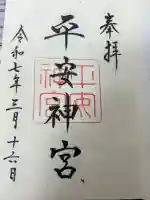 奉拝
平安神宮
令和七年三月十六日